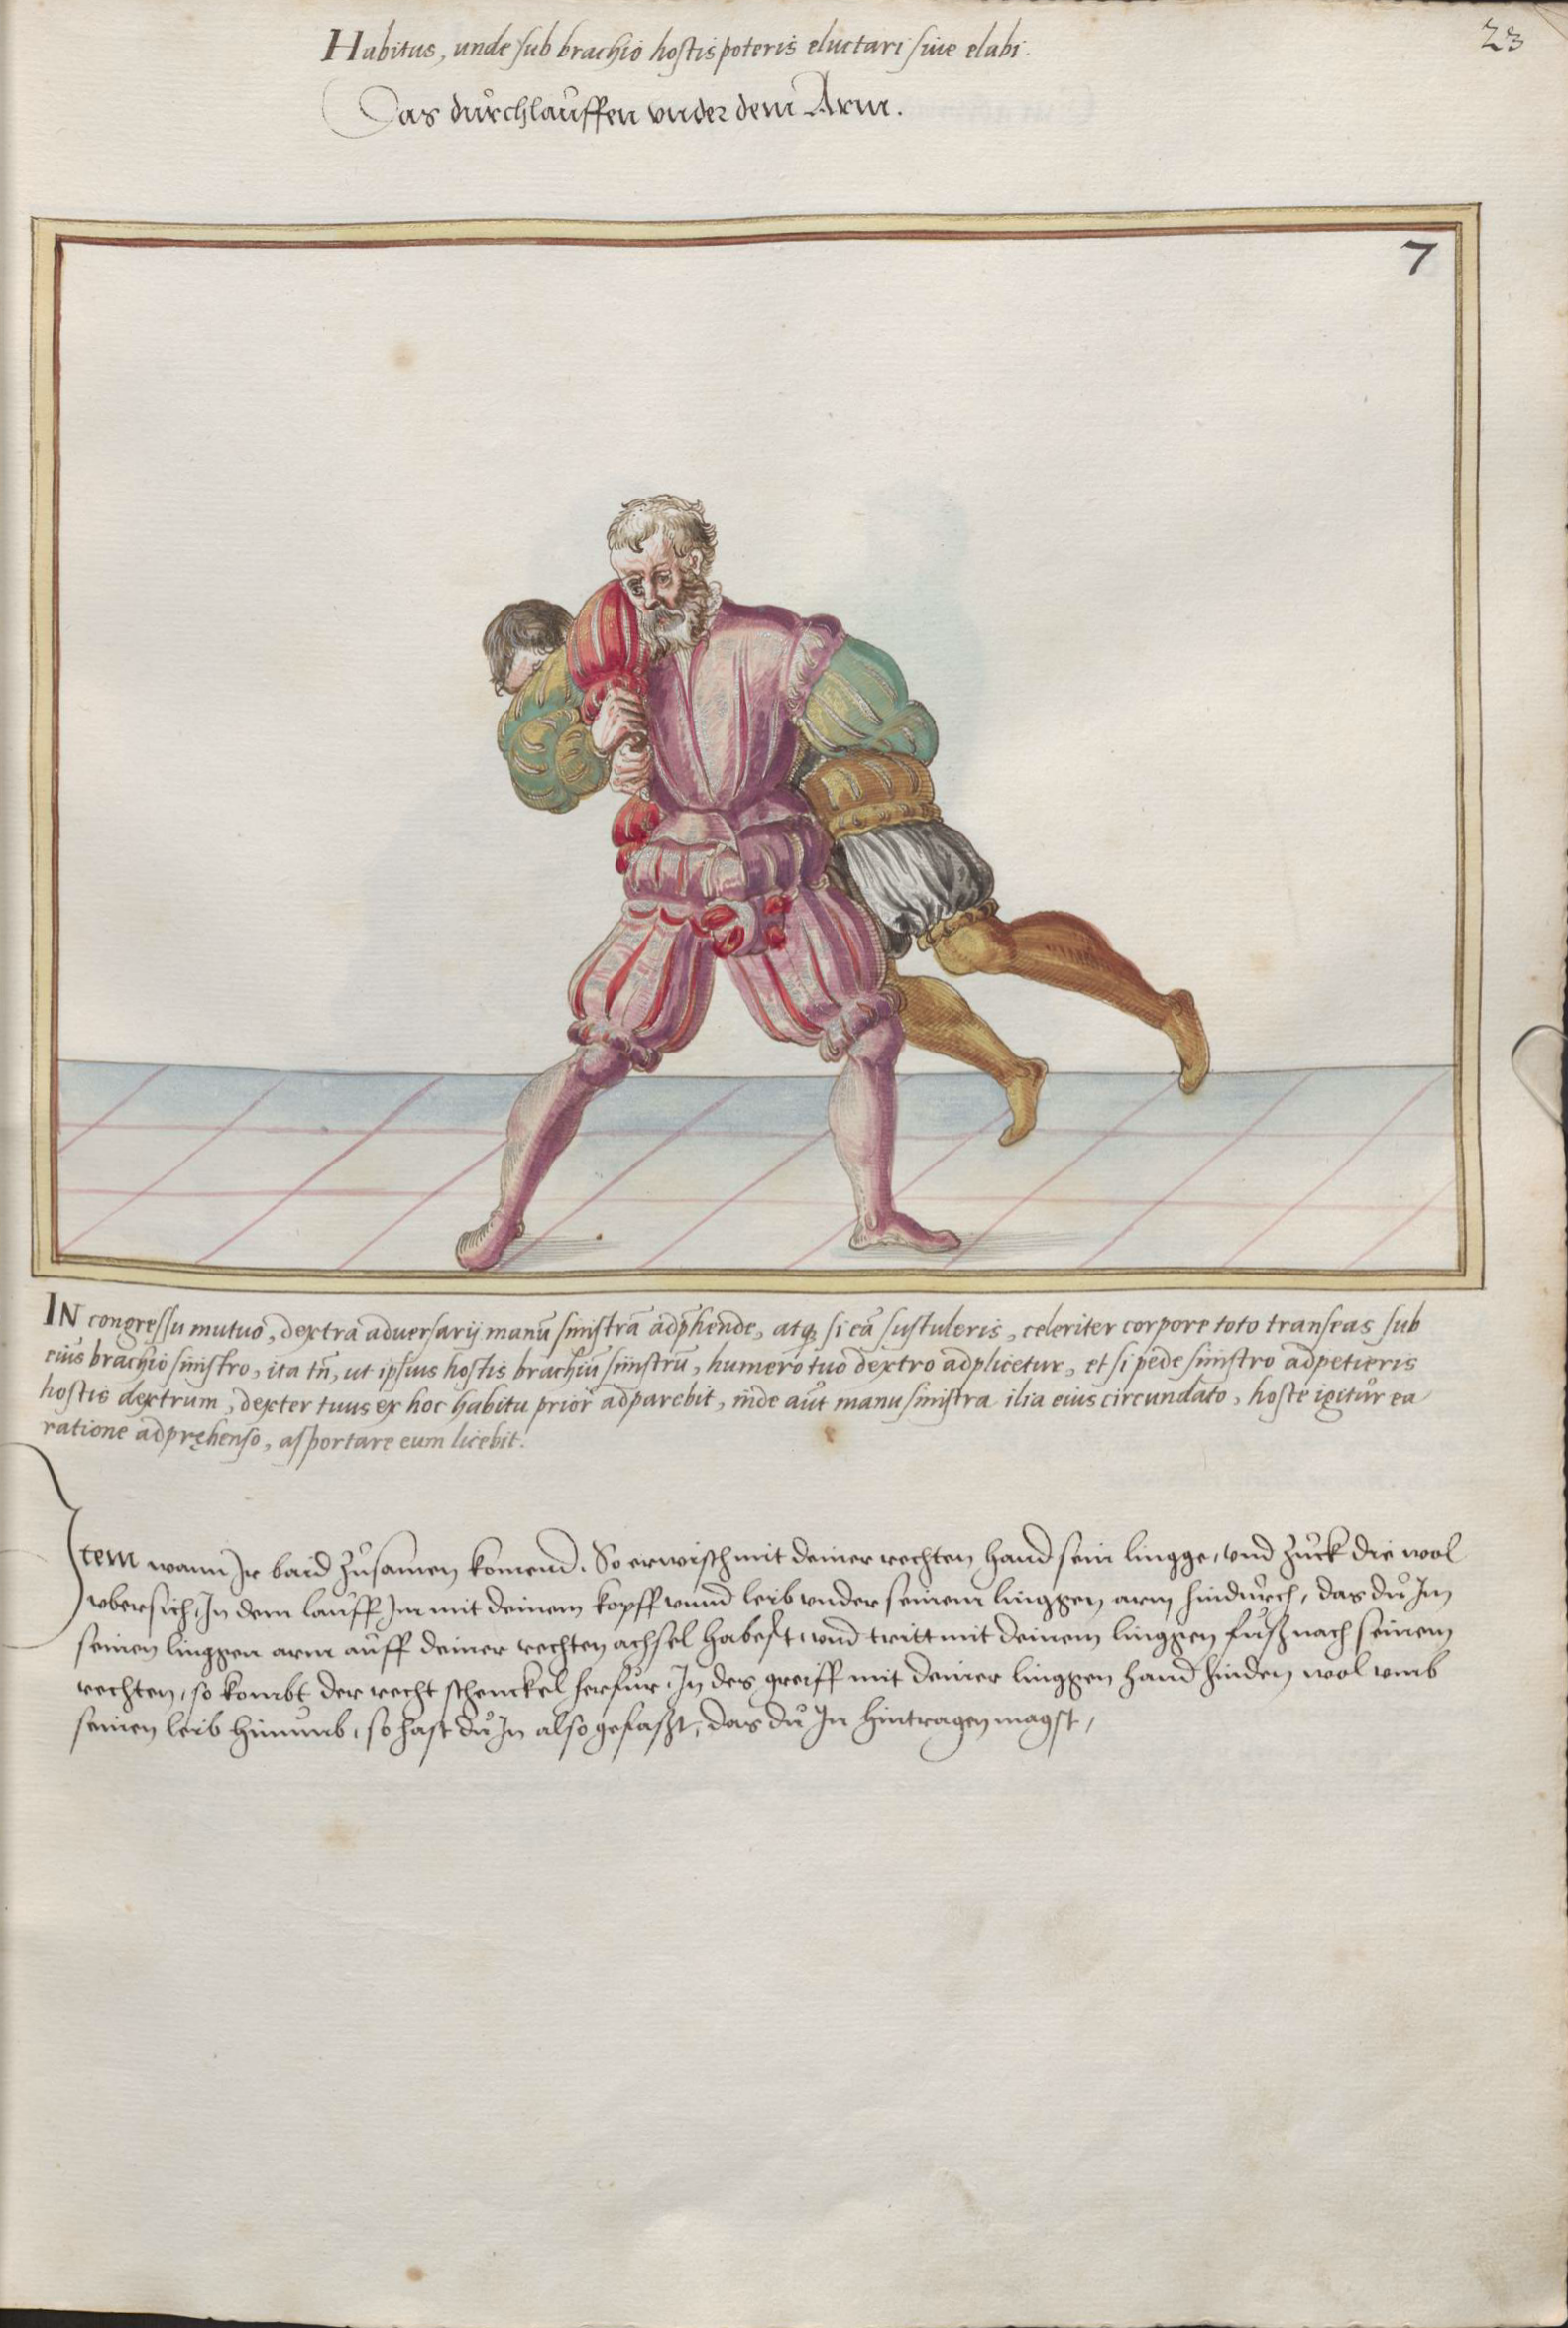 23
Habitus, unde sub brachio hostis poteris eluctari siue elabi.
Das důrchlauffen vnder dem Arm.
7
IN congressu mutuo, dextra aduersarij manū sinistrā adp̄hende, atq; si eā sustuleris, celeriter corpore toto transeas sub
eius brachio sinistro, ita tn̄, ut ipsius hostis brachiū sinistrū, humero tuo dextro adplicetur, et si pede sinistro adpetieris
hostis dextrum, dexter tuus ex hoc habitu prior adparebit, inde aūt manu sinistra ilia eius circundato, hoste igitur ea
ratione adpręhenso, asportare eum licebit.
Item wann Ir baid zůsamen komend. So erwisch mit deiner rechten hand sein lingge, vnd zuck die wol
vbersich, In dem lauff Im mit deinem kopff vnnd leib vnder seinem linggen arm hindurch, das dů Im
seinen linggen arm auff deiner rechten achsel habest, vnd tritt mit deinem linggen fůß nach seinem
rechten, so kombt der recht schenckel herfur, In des greiff mit deiner linggen hand hinden wol vmb
seinen leib hinumb, so hast dů In also gefaßt, das dů In hintragen magst,